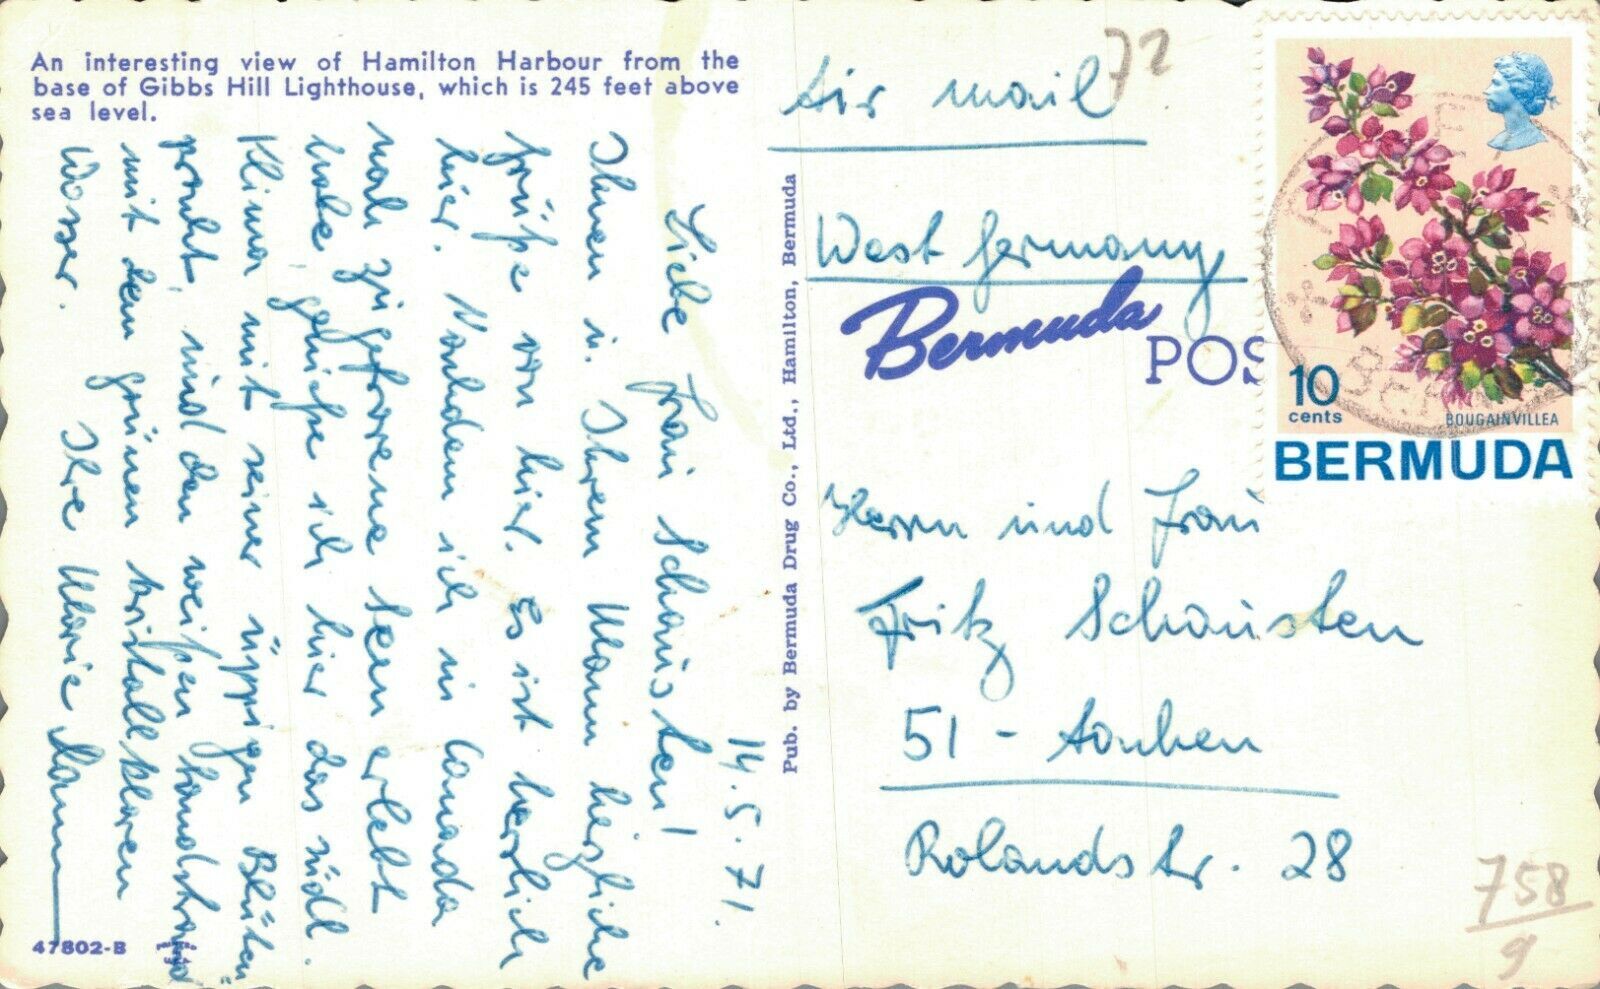 An interesting view of Hamilton Harbour from the
base of Gibbs Hill Lighthouse, which is 245 feet above
sea level.
14.5.71.
Liebe Frau Schausten!
Ihnen u. Ihrem Mann herzliche
Grüße von hier. Es ist herrlich
hier. Nachdem ich in Canada
noch zugefrorene Seen erlebt
habe, genieße ich hier das südl.
Klima mit seiner üppigen Blüten-
pracht, und den weißen Sandstrand
mit dem grünen kristallklaren
Wasser. Ihre Marie
47802-B
Pub. by Bermuda Drug Co., Ltd., Hamilton, Bermuda
Air mail
72
West Germany
Bermuda
POS
10
cents
BOUGAINVILLEA
BERMUDA
Herrn und Frau
Fritz Schausten
51 - Aachen
Rolandstr. 28
758
9